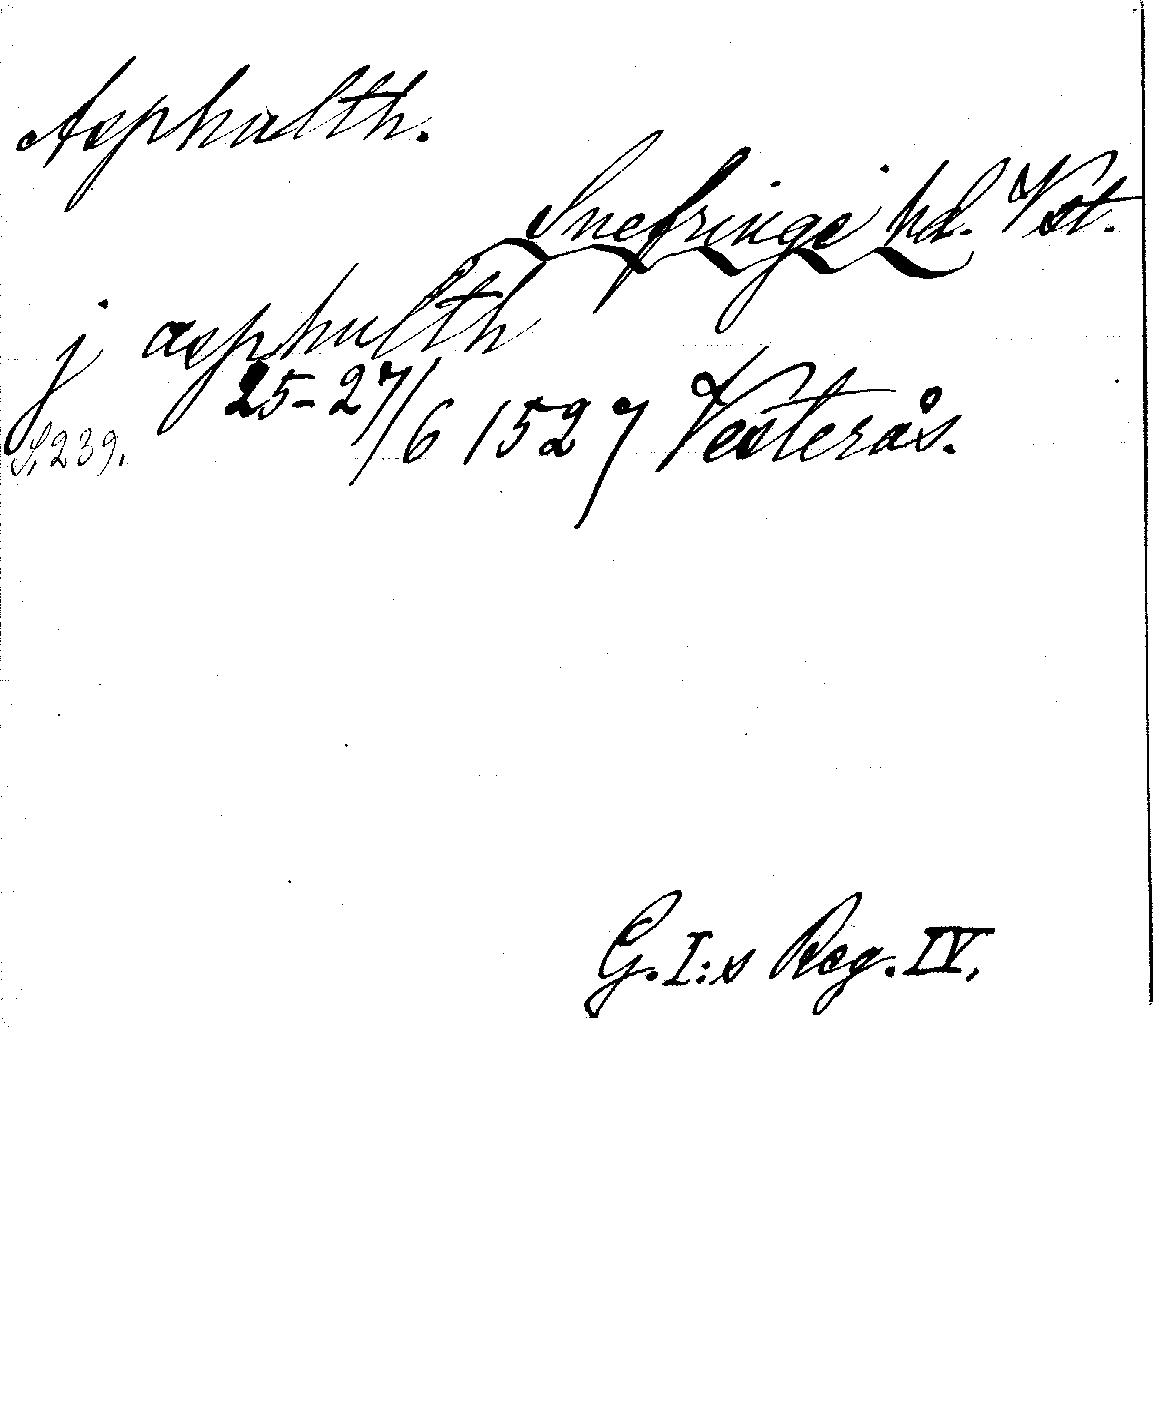 Asphulth.
Snefringe hd. Vst.
j asphulth
25-27/6 1527 Vesterås.
S. 239.
G. I:s Reg. IV.